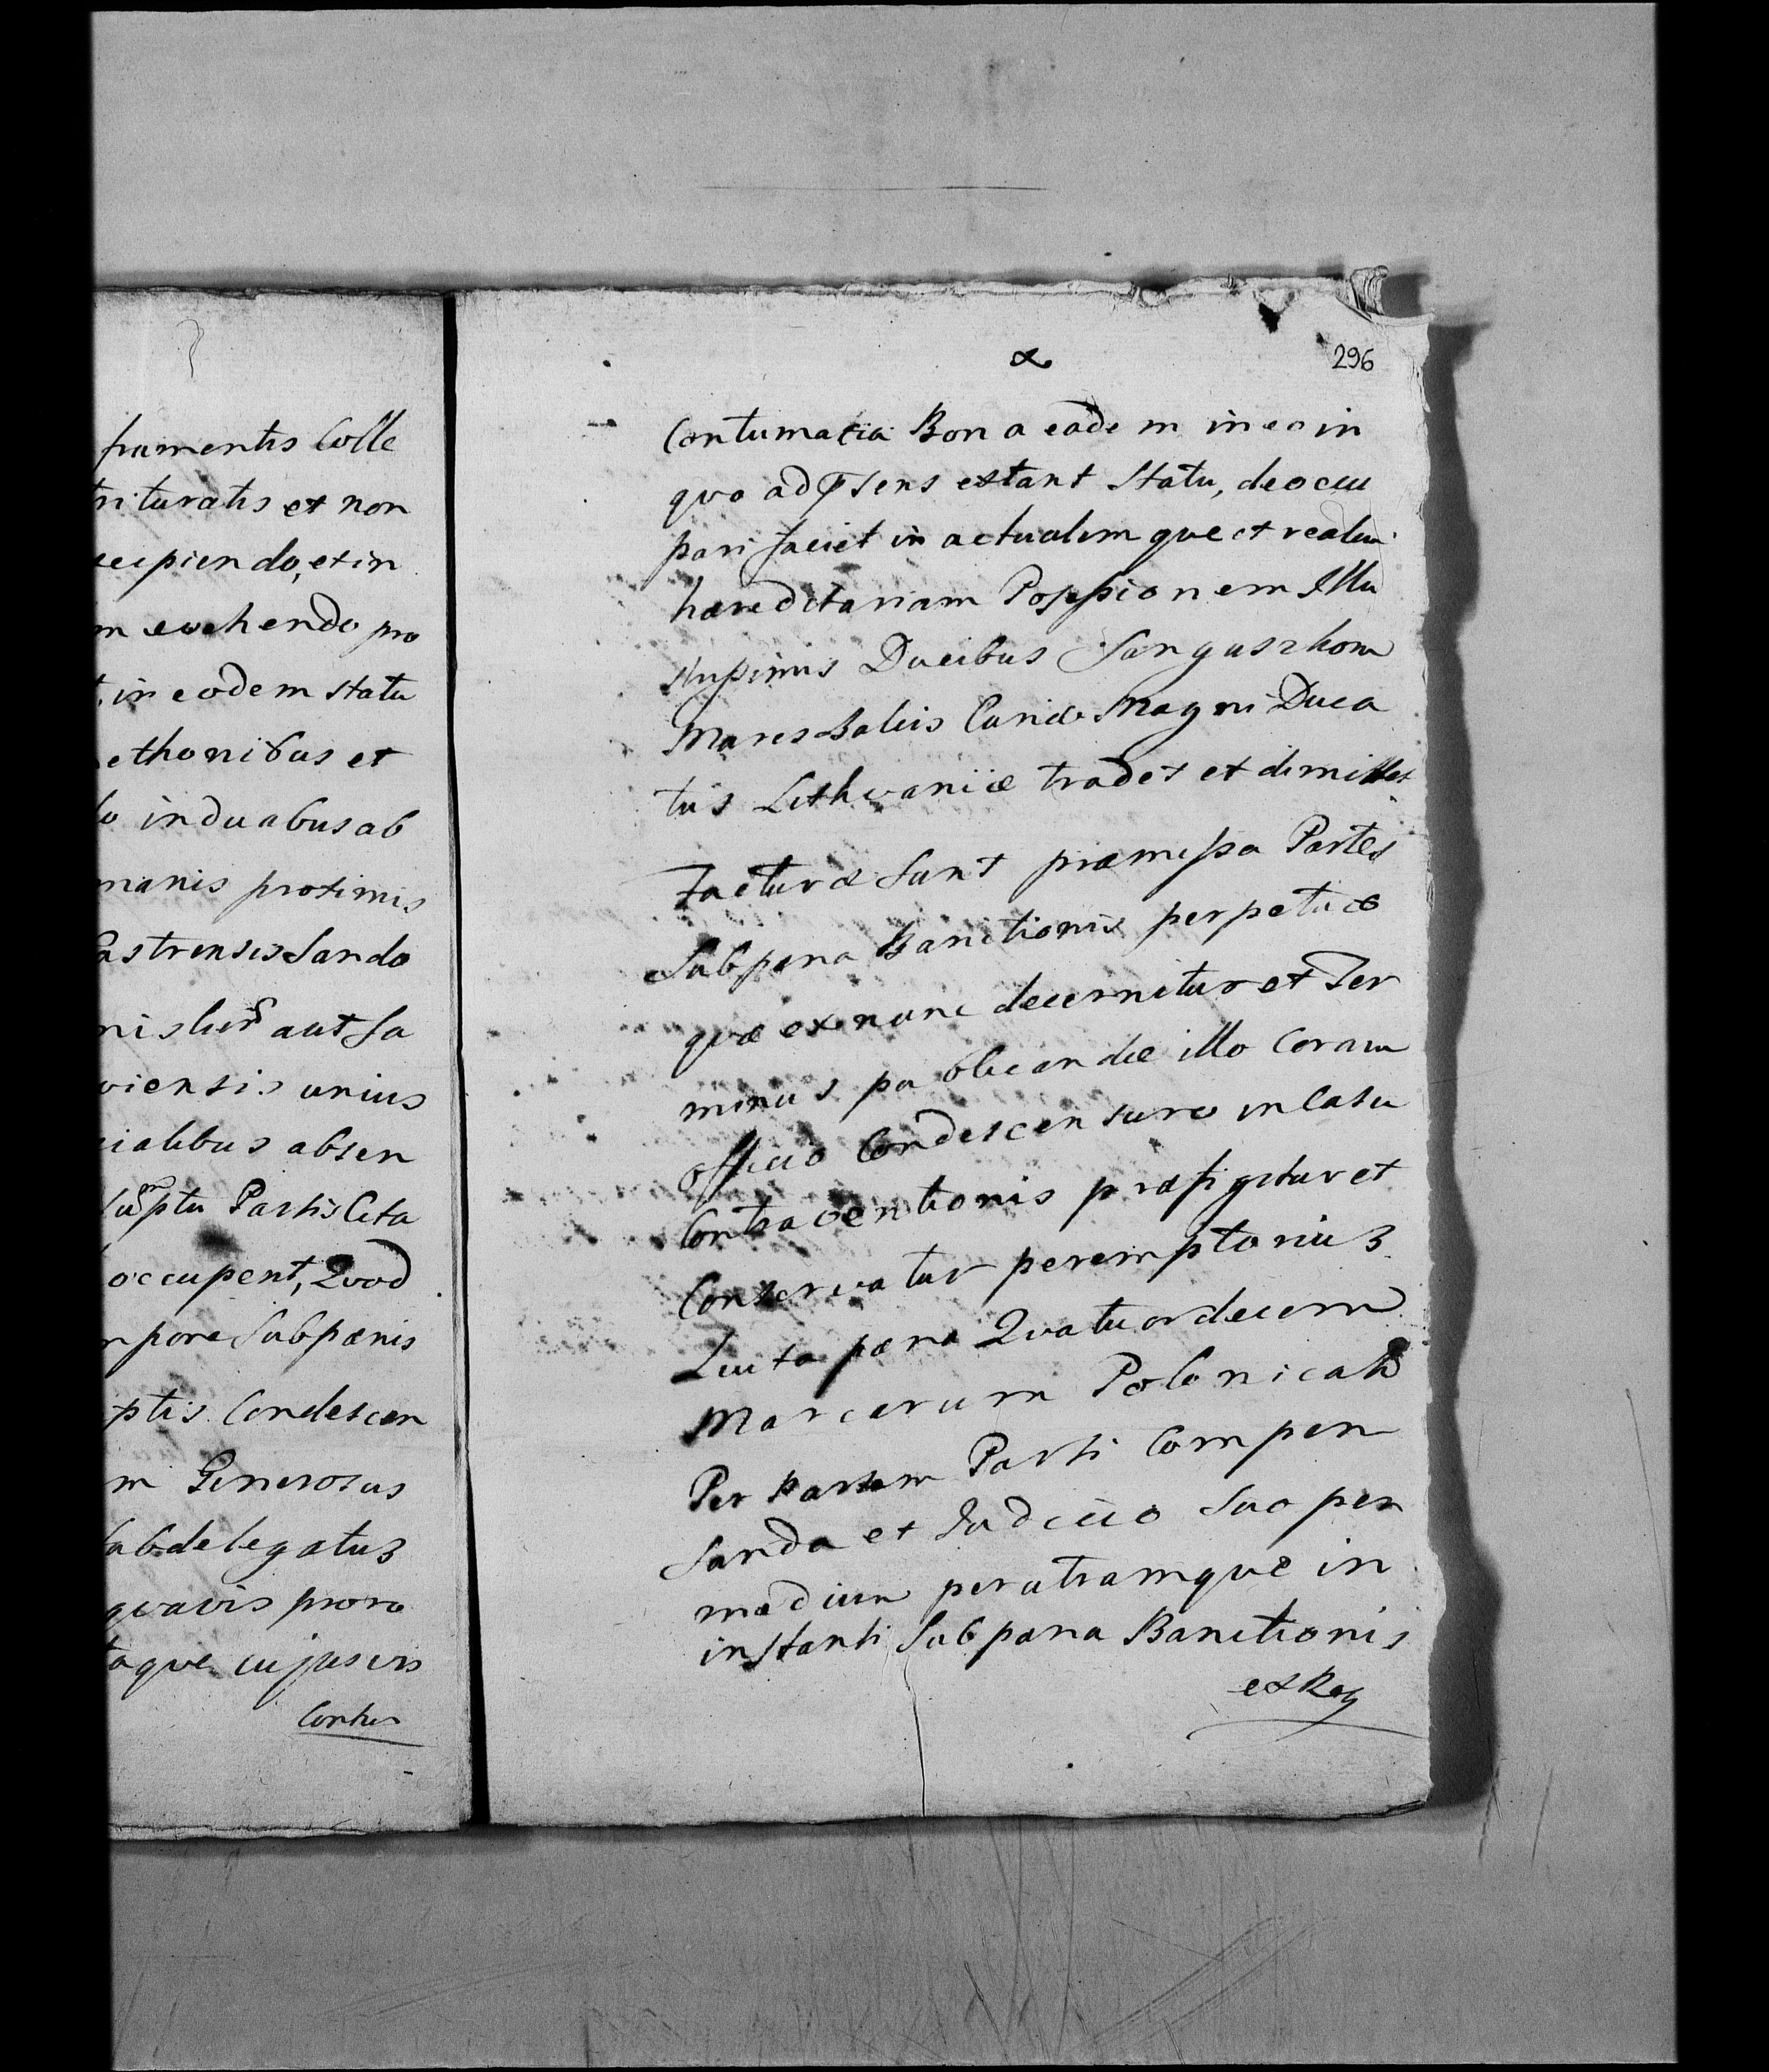 frumentis Colle
trituratis et non
cipiendo, et in
m evehendo pro
in eodem statu
ethonibus et
in duabus ab
manis proximis
Castrensis Sando
aut Sa
viensis unius
ialibus absen
sūptu Partis Cita
occupent, Quod
mpore Sub pænis
ptis Condescen
m Generosus
Subdelegatus
quavis proro
aque cujusvis
Contu
296
Contumatia Bona eadem in eo in
quo ad p̄sens extant Statu, deoccu
pari faciet in actualem que et realem
hæreditariam Possessionem Illu
strissimis Ducibus Sanguszkom
Mareschalcis Curiæ Magni Duca
tus Lithvaniæ tradet et dimittet
Facturæ Sunt præmissa Partes
Sub pæna Banitionis perpetuæ
quæ ex nunc decernitur et Ter
minus publicandæ illo Coram
officio Condescensuro in Casu
Contraventionis præfigitur et
Conservatur peremptorius
Luita pæna Quatuordecem
Marcarum Polonicaliū
Per Partem Parti Compen
sanda et Judicio Suo per
medium per utramque in
instanti Sub pæna Banitionis
ex Reg